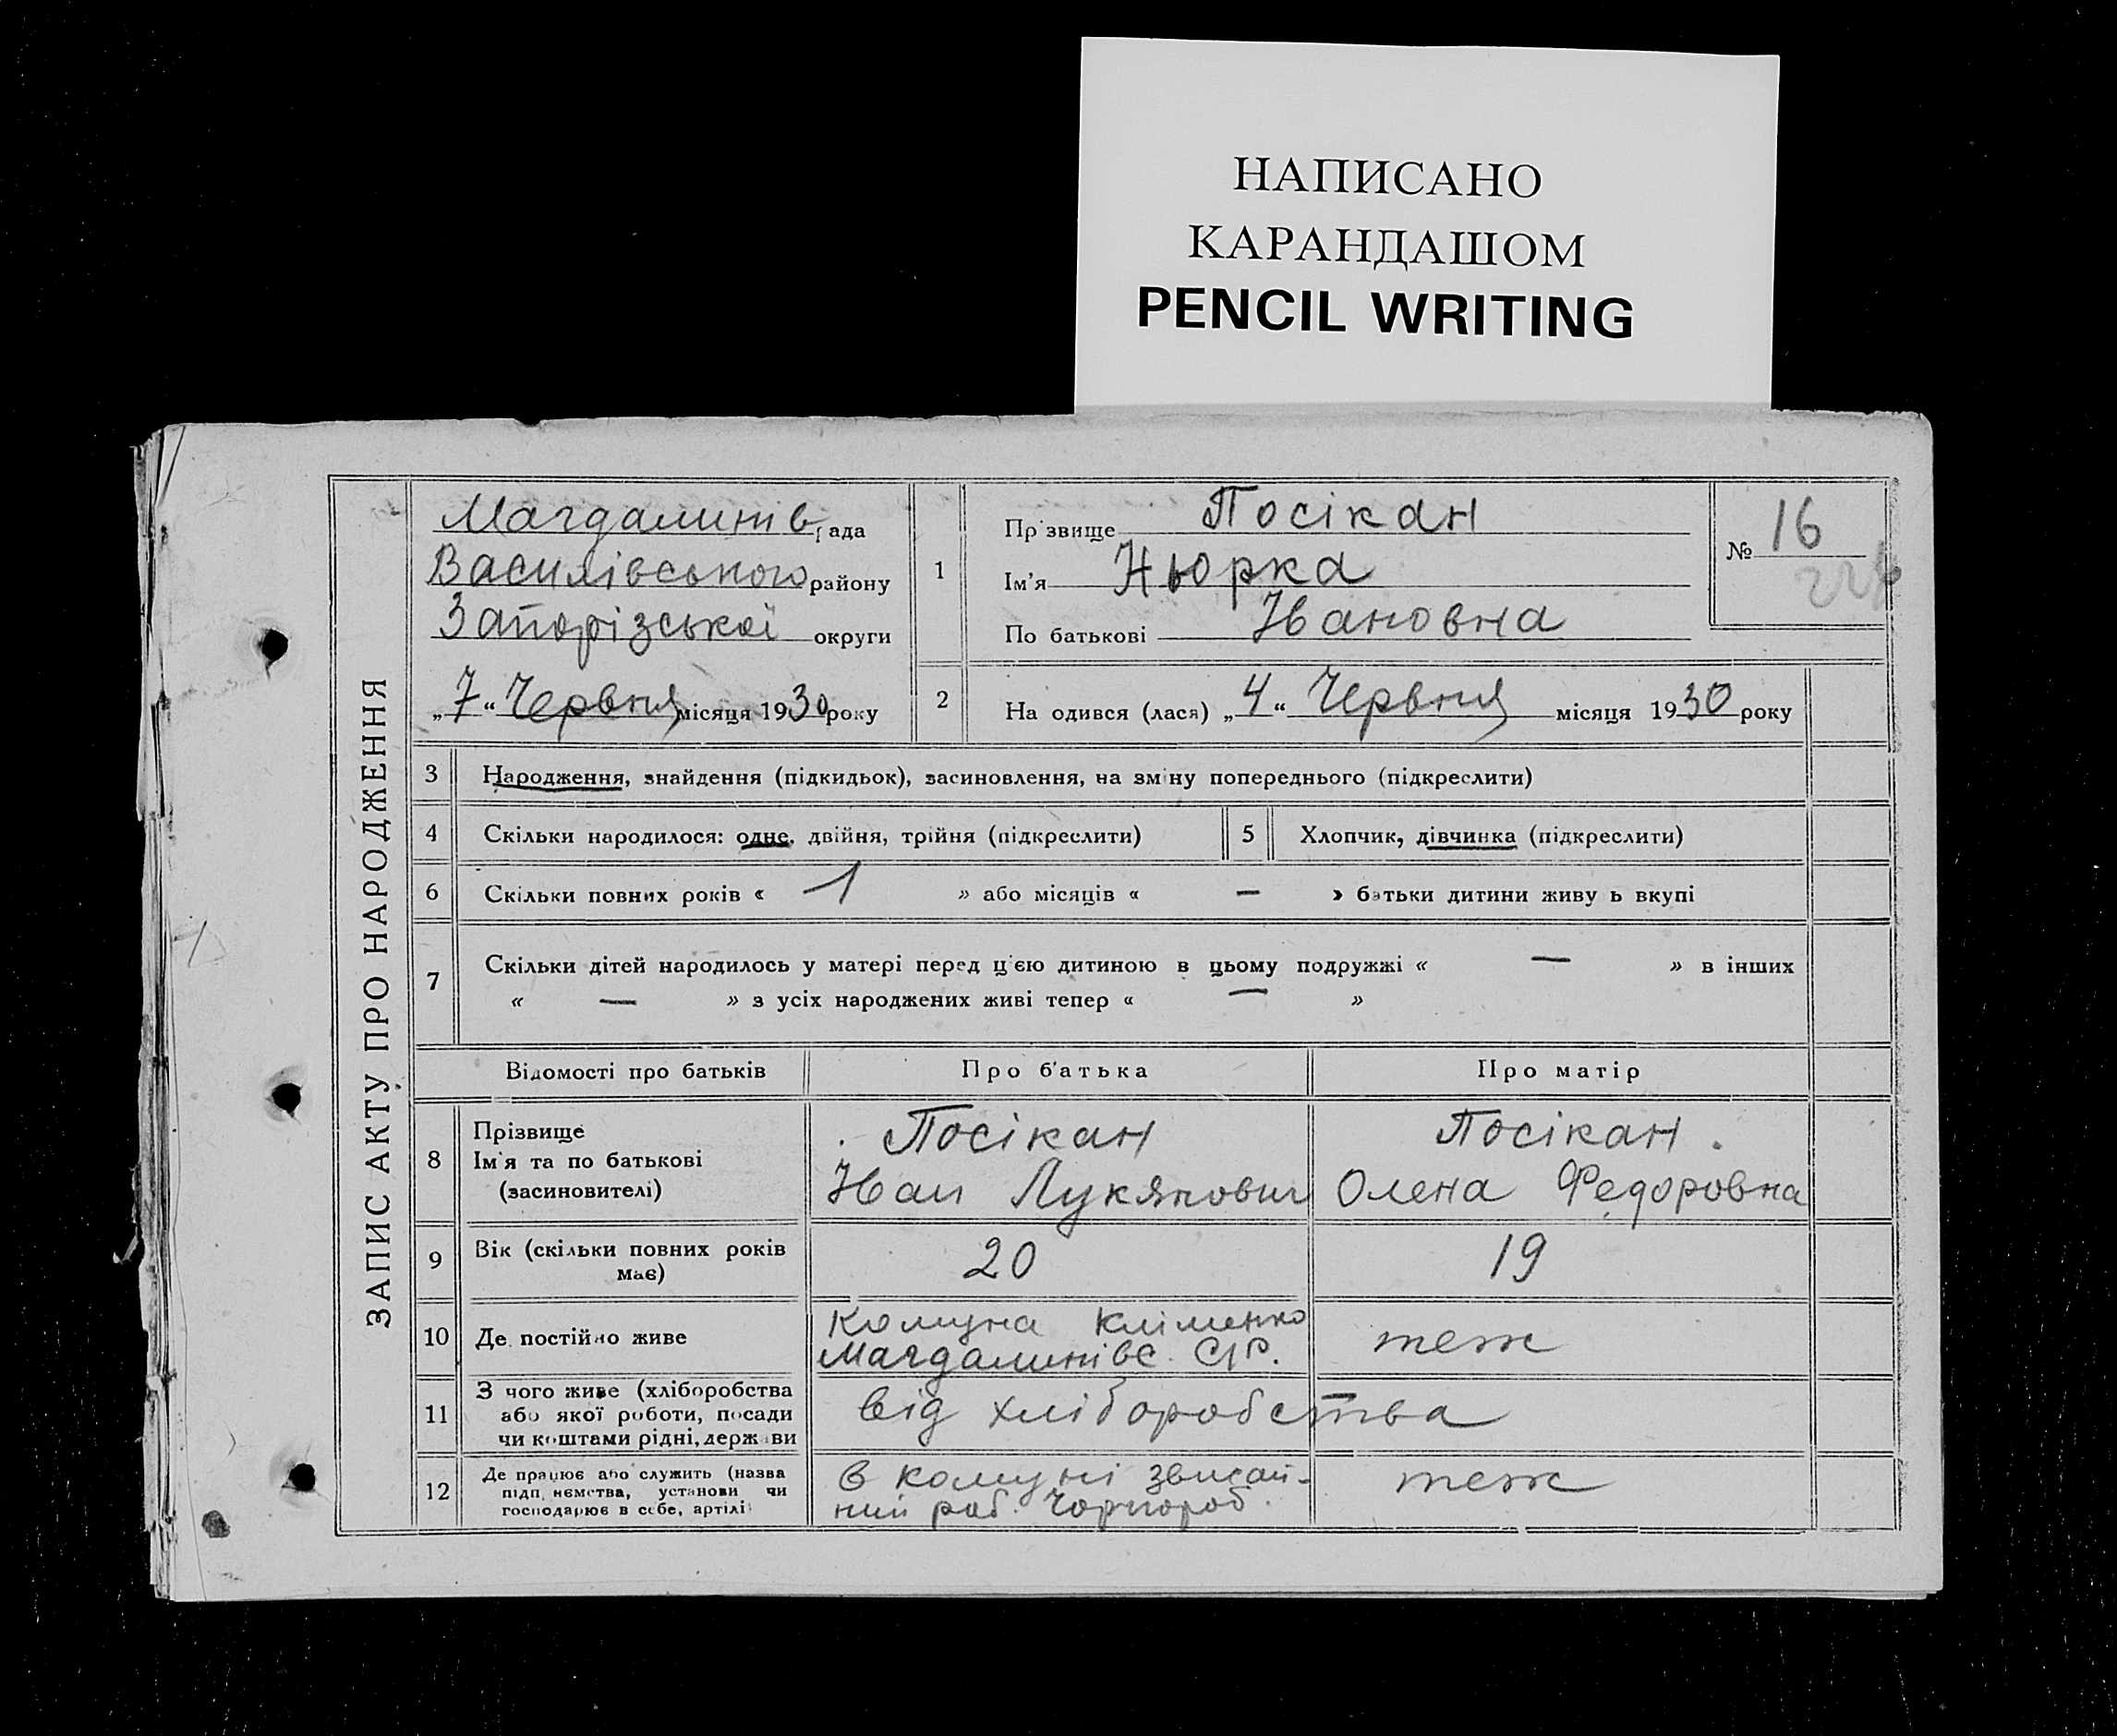 НАПИСАНО
КАРАНДАШОМ
PENCIL WRITING
ЗАПИС АКТУ ПРО НАРОДЖЕННЯ
Магдалинів рада
Василівського району
Запорізської округи
„7“ Червня місяця 1930 року
1
Прізвище Посікан
Ім'я Нюрка
По батькові Івановна
№ 16
2
На одився (лася) „4“ Червня місяця 1930 року
3 Народження, знайдення (підкидьок), засиновлення, на зміну попереднього (підкреслити)
4 Скільки народилося: одне, двійня, трійня (підкреслити)
5 Хлопчик, дівчинка (підкреслити)
6 Скільки повних років « 1 » або місяців « — » батьки дитини живу ь вкупі
7 Скільки дітей народилось у матері перед цією дитиною в цьому подружжі « — » в інших
« — » з усіх народжених живі тепер « — »
Відомості про батьків Про батька Про матір
8 Прізвище
Ім'я та по батькові
(засиновителі)
Посікан
Іван Лукянович
Посікан.
Олена Федоровна
9 Вік (скільки повних років
має)
20
19
10 Де постійно живе
Комуна Кліменко
Магдалинівс. С/Р.
теж
11 З чого живе (хліборобства
або якої роботи, посади
чи коштами рідні, держави
від хліборобства
12 Де працює або служить (назва
підприємства, установи чи
господарює в себе, артілі)
в комуні звичай-
ний роб. Чорнороб.
теж